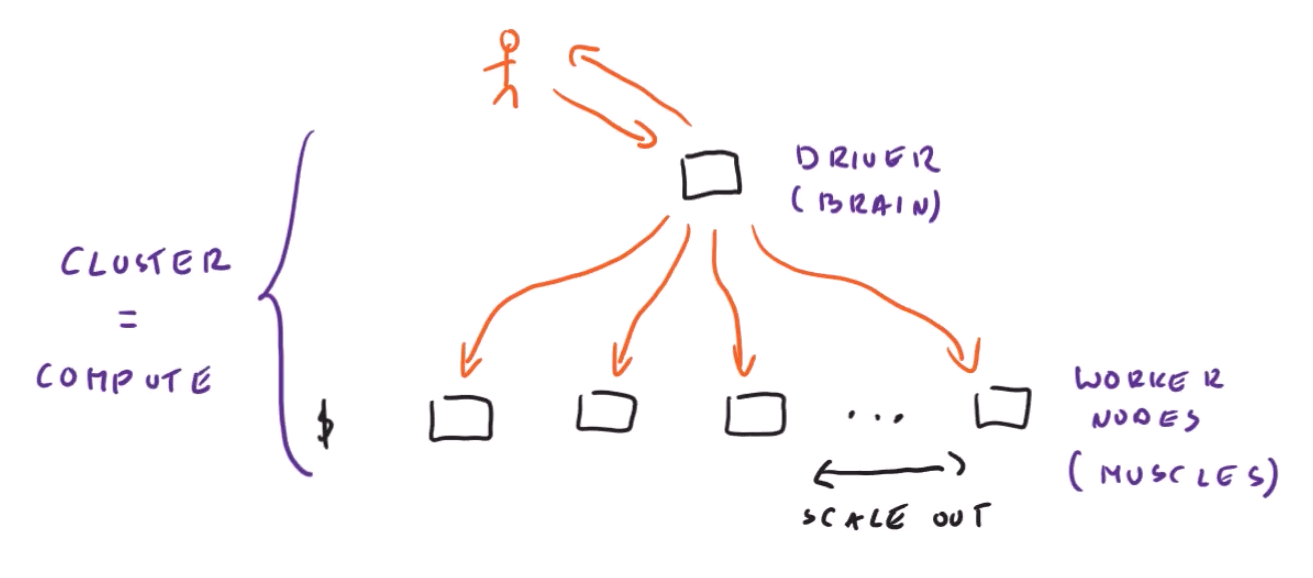 DRIVER
(BRAIN)
CLUSTER
=
COMPUTE
$
...
WORKER
NODES
(MUSCLES)
SCALE OUT